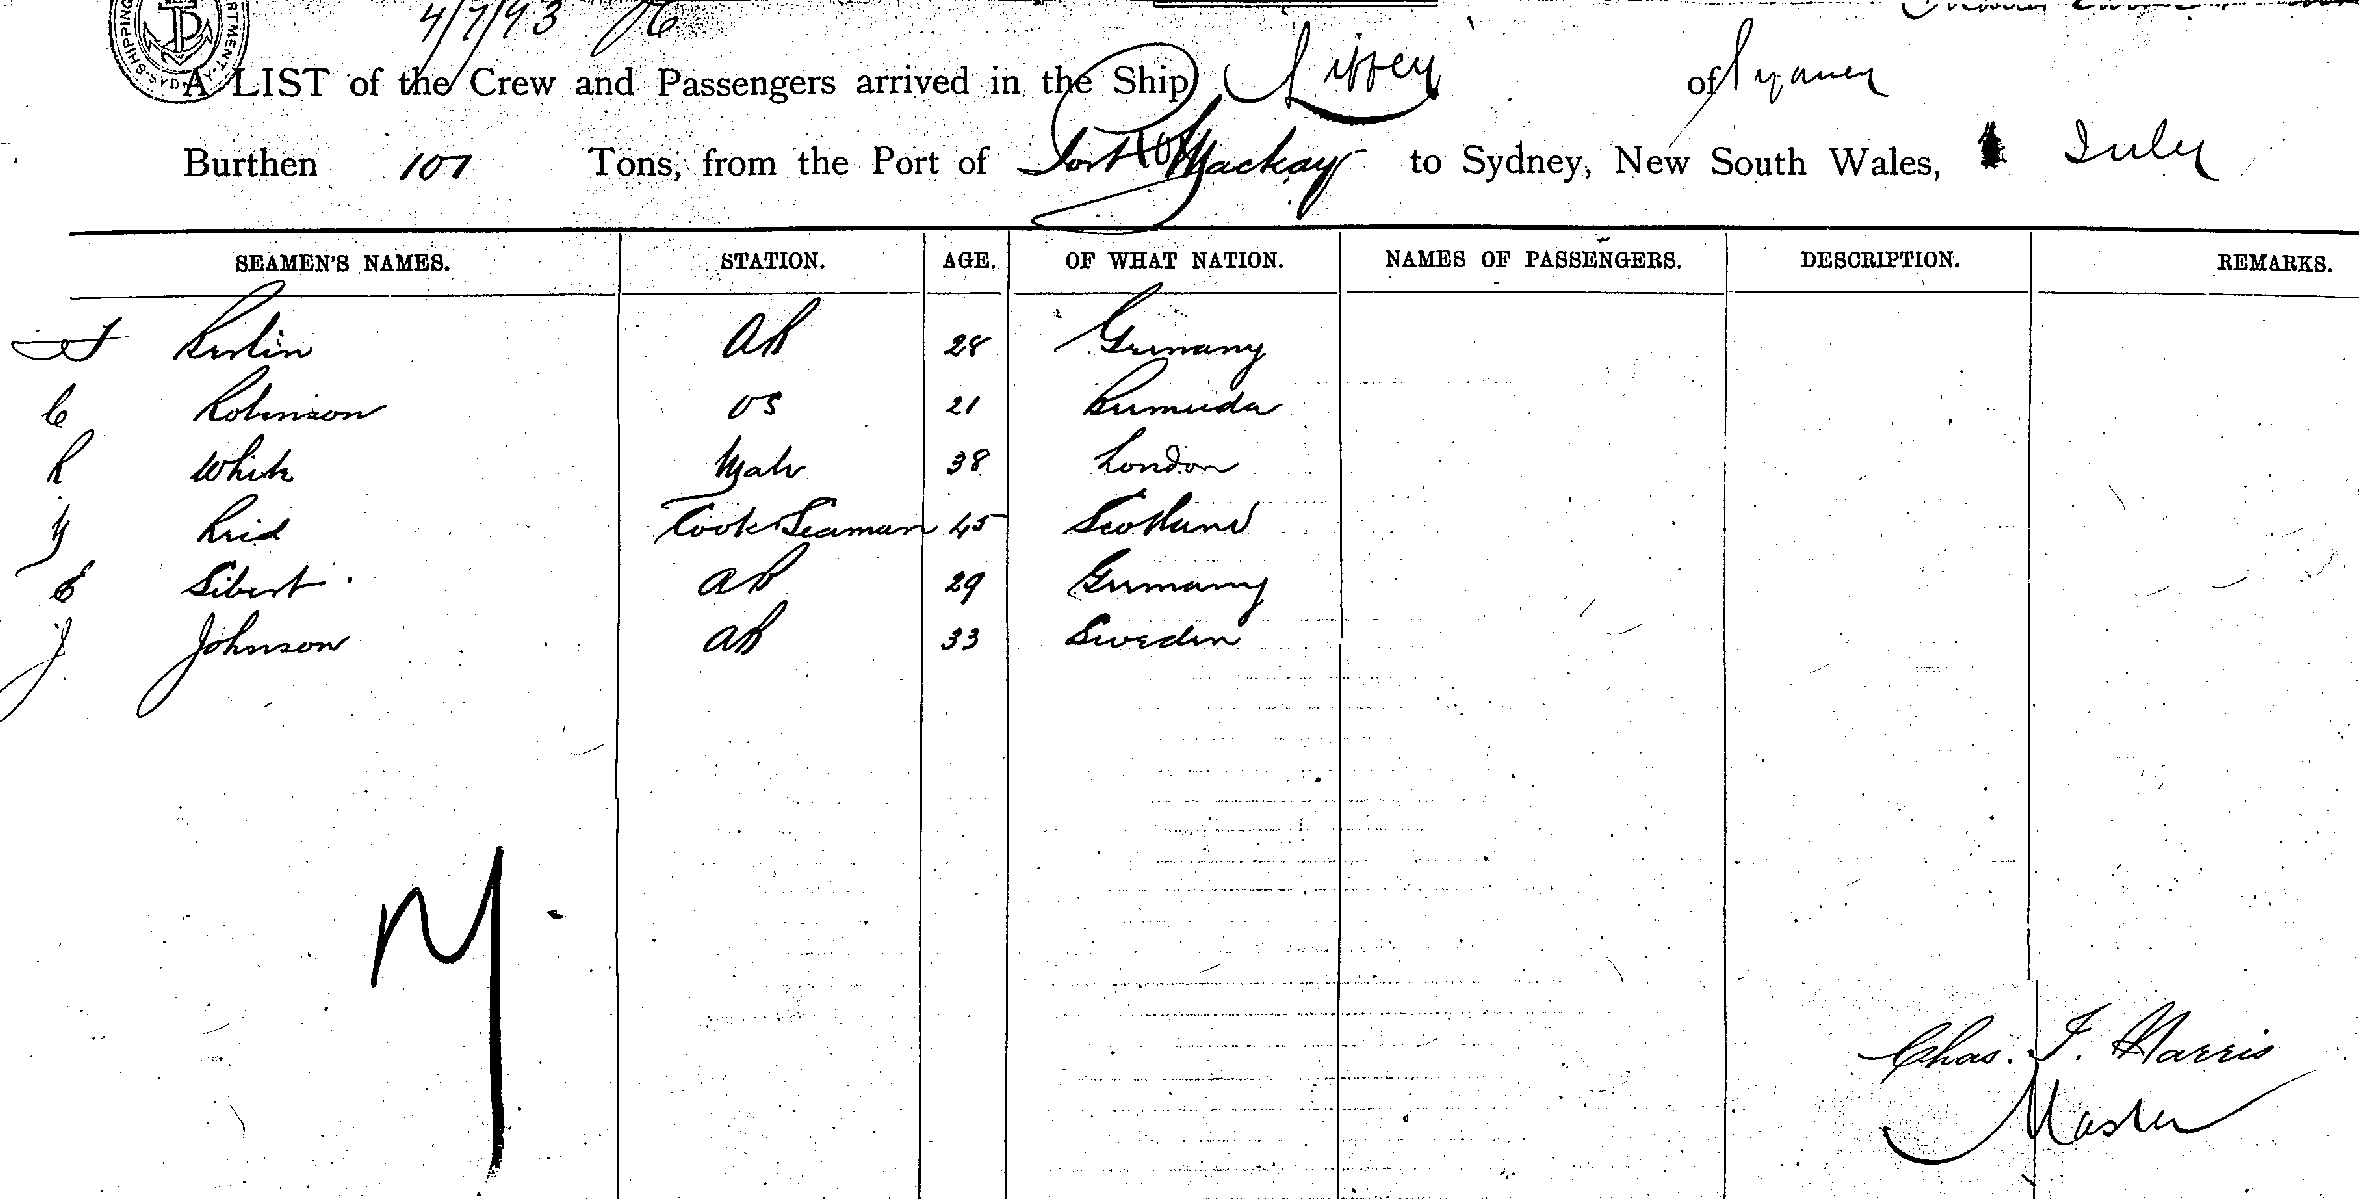 4/7/93
A LIST of the Crew and Passengers arrived in the Ship Liffey of Sydney
Burthen 107 Tons, from the Port of Port Mackay to Sydney, New South Wales, July
SEAMEN'S NAMES. STATION. AGE. OF WHAT NATION. NAMES OF PASSENGERS. DESCRIPTION. REMARKS.
Berlin AB 28 Germany
C Robinson OS 21 Bermuda
R White Mate 38 London
Y Reid Cook Seaman 45 Scotland
E Sibert AB 29 Germany
J Johnson AB 33 Sweden
Chas. F. Harris
Master